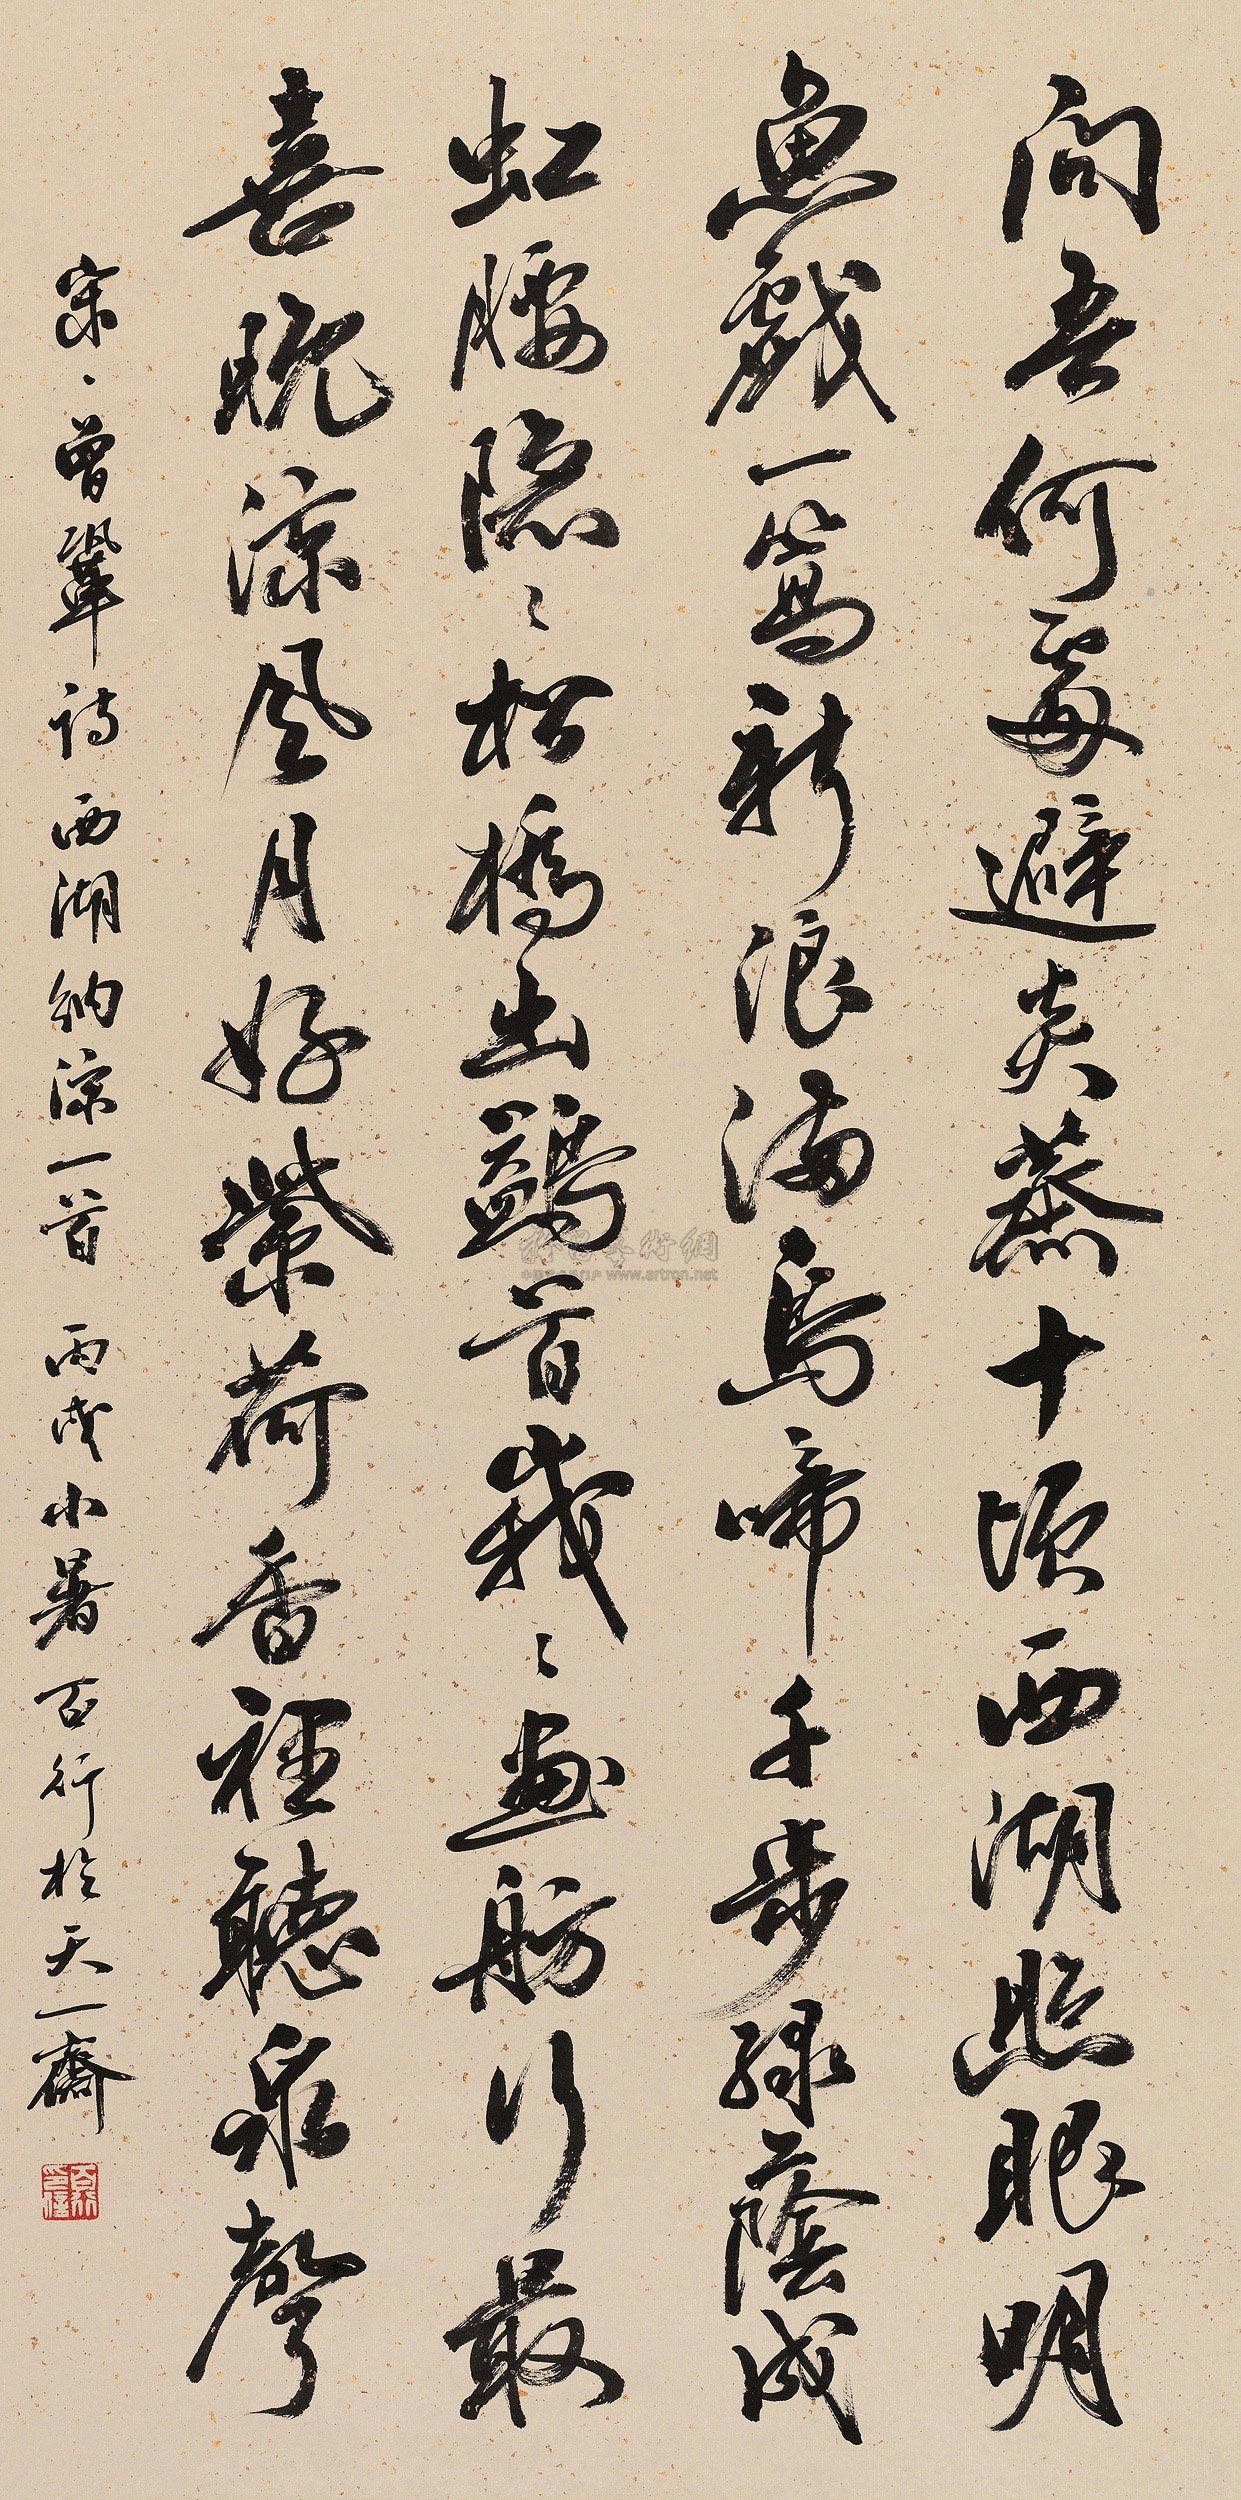 问吾何處避炎蒸十顷西湖照眼明
魚戲一篙新浪满烏啼千步绿蔭成
虹腰隐〻松橋出鷁首峩〻畫舫行最
喜晚涼风月好紫荷香裡聽泉聲
宋·曾鞏诗西湖纳涼一首 丙戌小暑百行於天一齋
www.artron.net